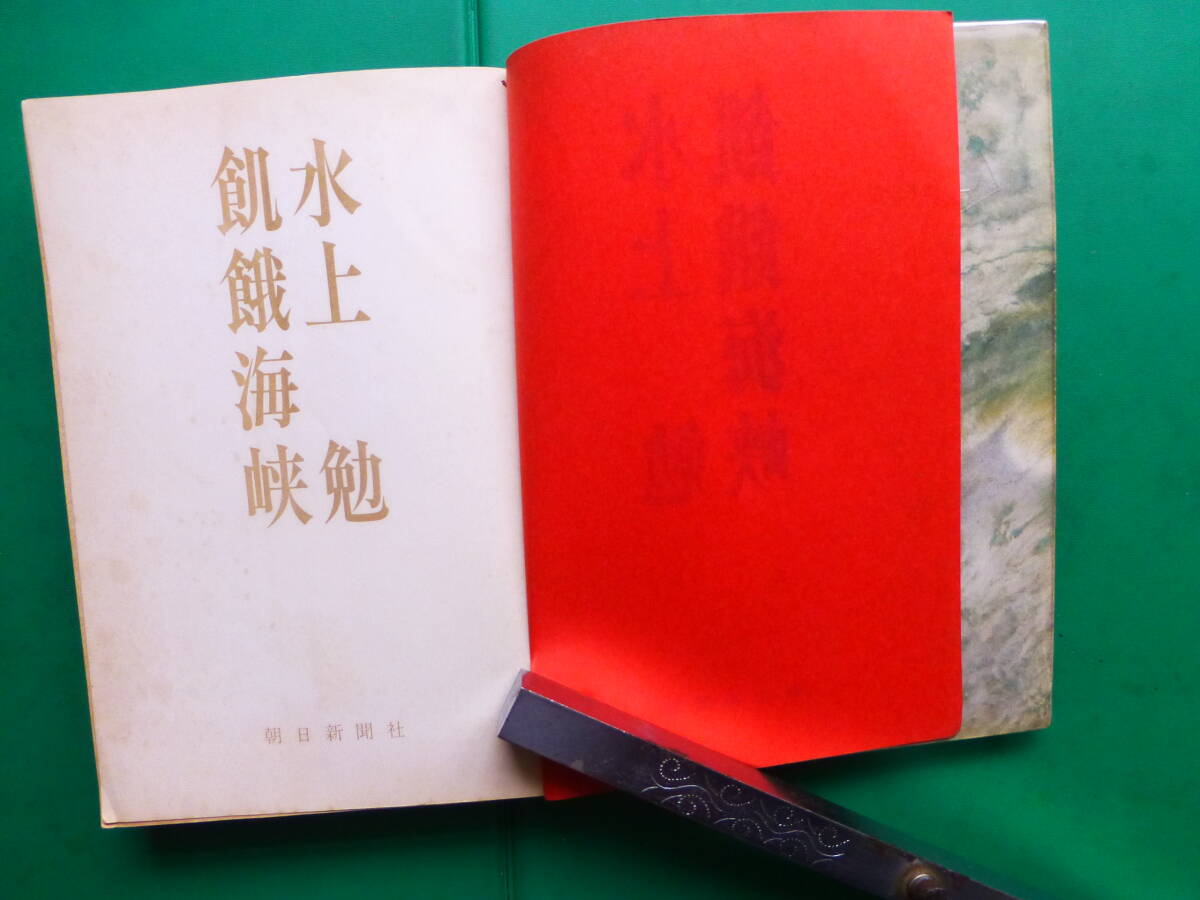 水上勉
飢餓海峡
朝日新聞社